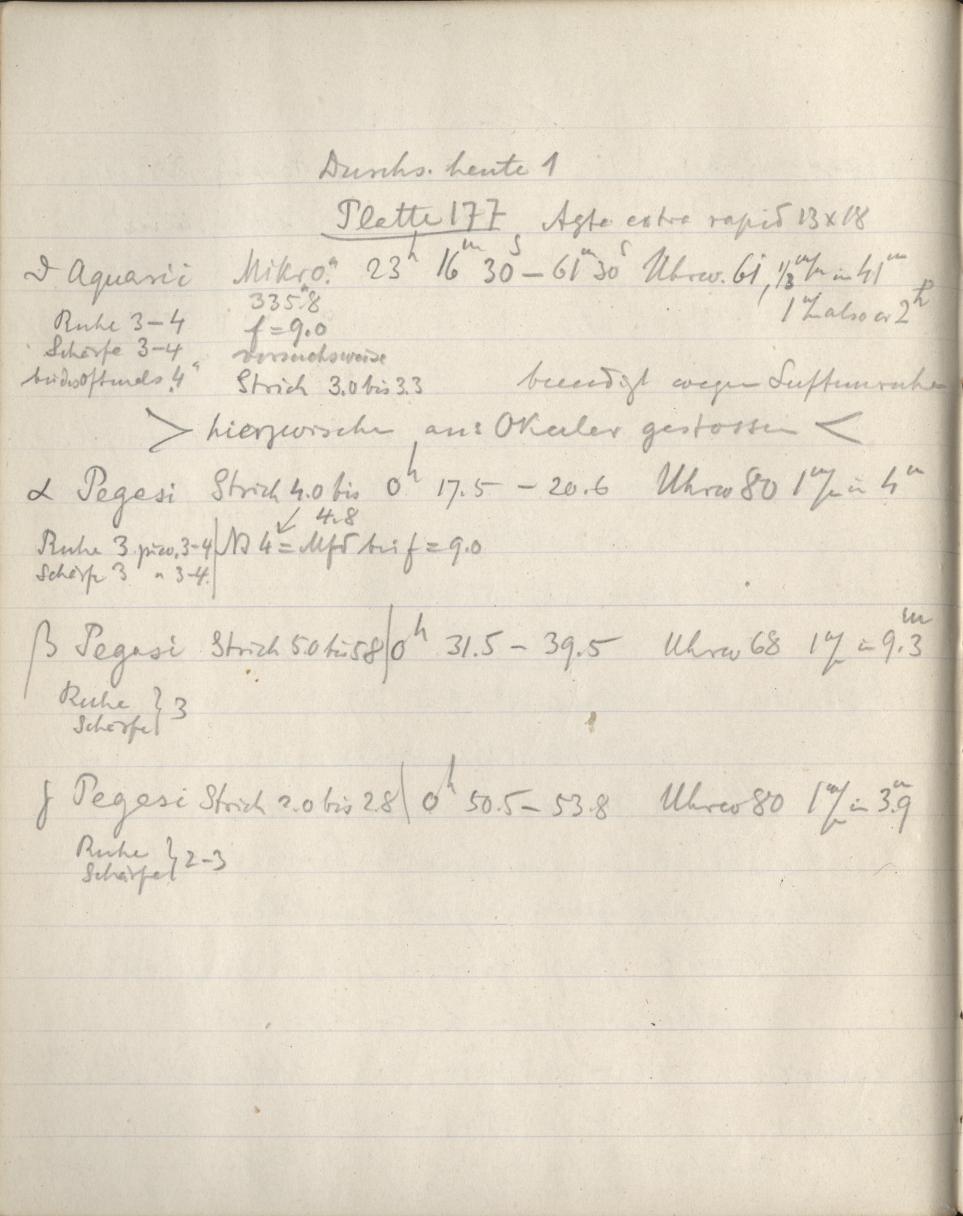 Durchs. heute 1
Platte 177, Agfa extra rapid 13x18
Aquarii Mikro. 23h 16m 30s – 61m 30s Uhrw. 61, 1/3 m/m in 41m
335.8 1 m/m also ca 2h
Ruhe 3–4 f = 9.0
Schärfe 3–4 versuchsweise
beides oftmals 4 Strich 3.0 bis 3.3 beendigt wegen Luftunruhe
> hierzwischen ans Okular gestossen <
α Pegasi Strich 4.0 bis 4.8 0h 17.5 – 20.6 Uhrw 80 1 m/m in 4m
Ruhe 3 3–4 | NB 4 = bei f = 9.0
Schärfe 3 " 3–4.
β Pegasi Strich 5.0 bis 5.8 | 0h 31.5 – 39.5 Uhrw 68 1 m/m in 9.3m
Ruhe } 3
Schärfe
γ Pegasi Strich 2.0 bis 2.8 | 0h 50.5 – 53.8 Uhrw 80 1 m/m in 3.9m
Ruhe } 2–3
Schärfe